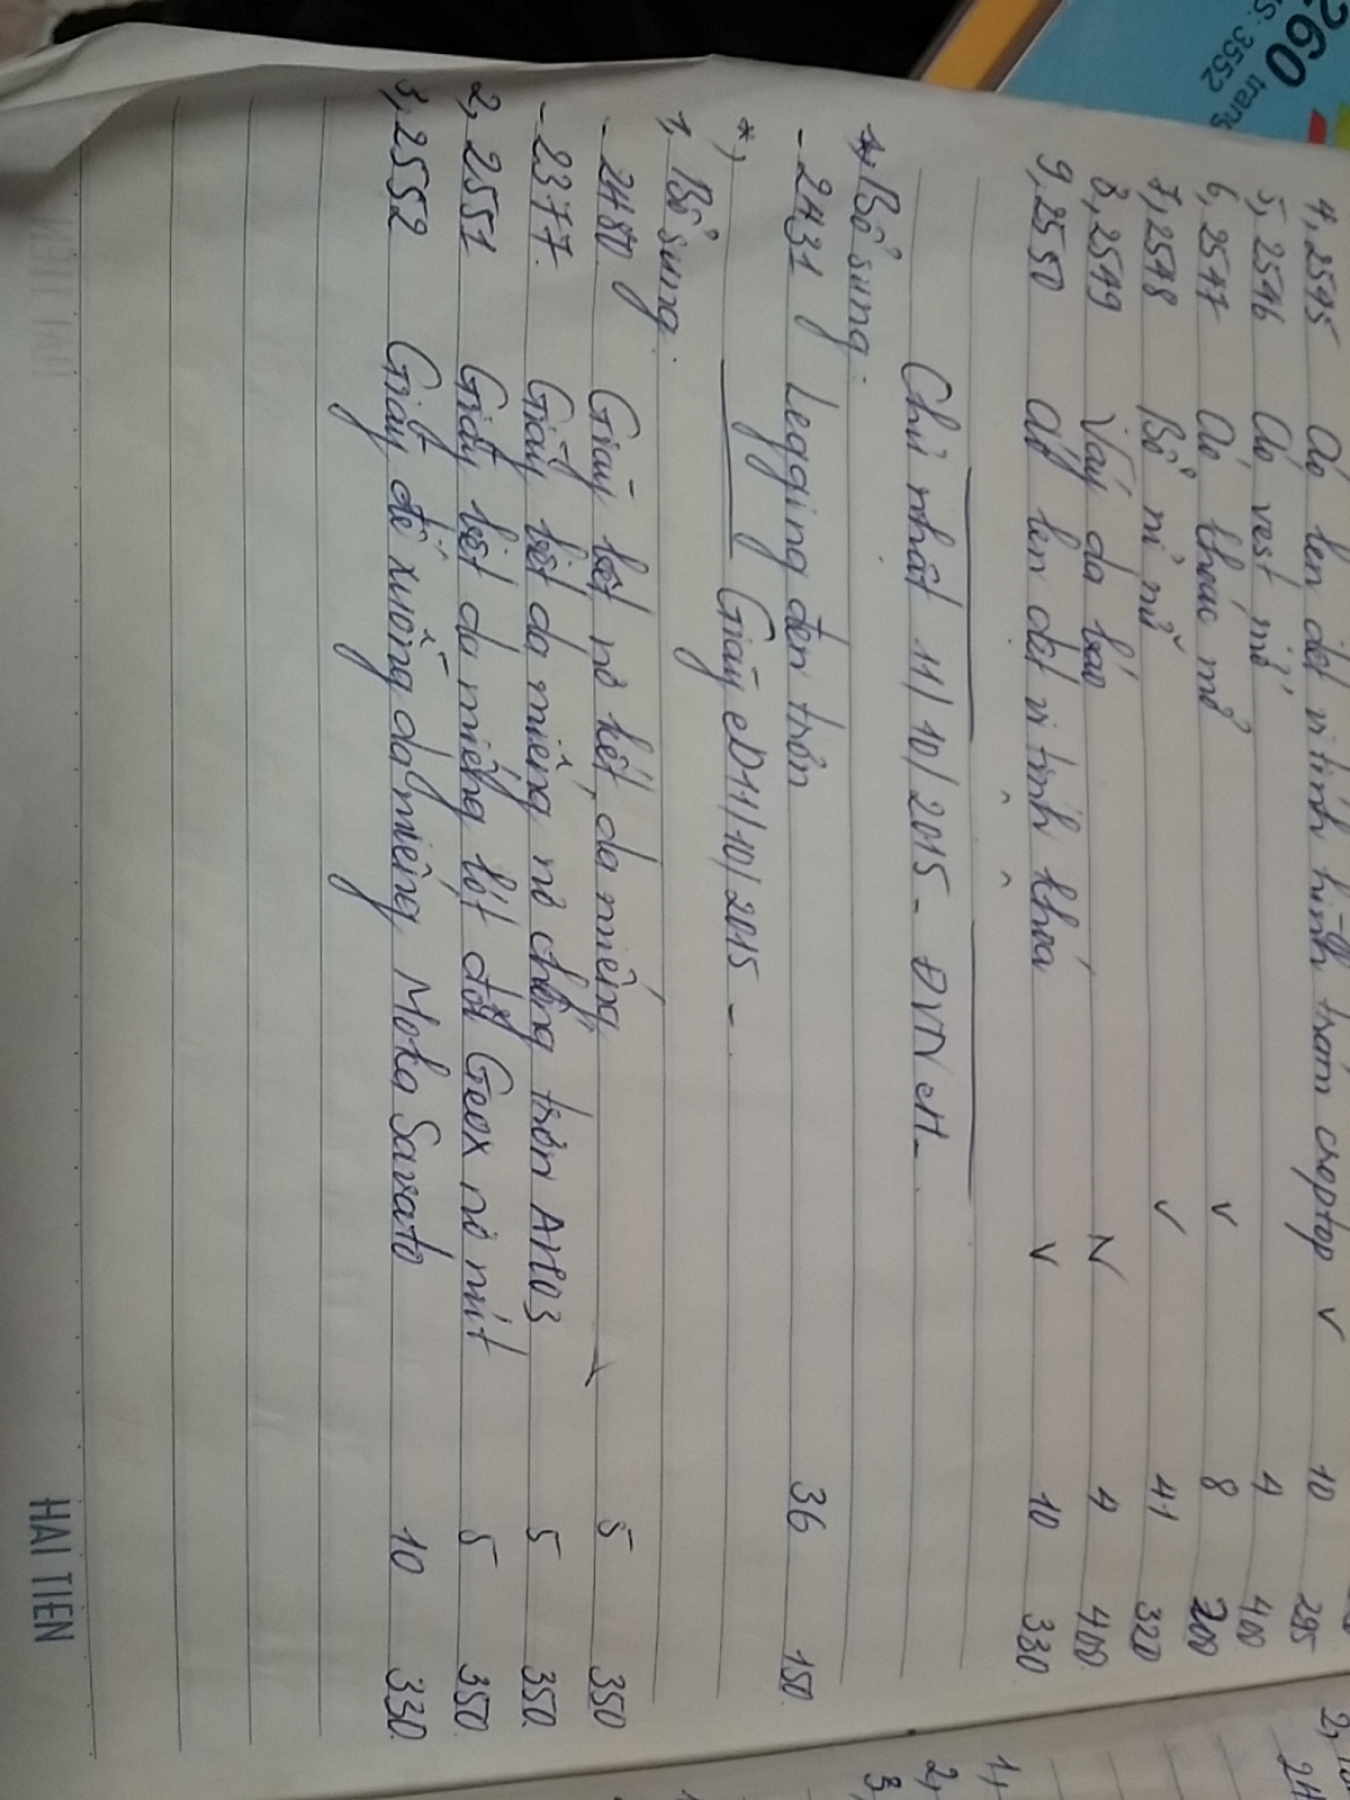 260 trang
4, 2545 Áo len dệt vi tính hình trám croptop v 10 295
5, 2546 Áo vest nỉ 4 400
6, 2547 Áo khoác mổ v 8 200
7, 2548 Bộ nỉ nữ v 41 320
8, 2549 Váy da báo N 4 400
9, 2550 Áo len dệt vi tính khoá v 10 330
Chủ nhật 11/10/2015 - ĐVN
Bổ sung:
- 2431 Legging đen trơn 36 150
*, Giầy 11/10/2015 -
1, Bổ sung:
- 2480 Giầy bệt nơ kết, da miếng 5 350
- 2377 Giầy bệt da miếng nơ chồng trơn 5 350
2, 2551 Giầy bệt da miếng lót Geox nơ nút 5 350
3, 2552 Giầy đế xuồng da miếng Moka Savato 10 330
HAI TIEN